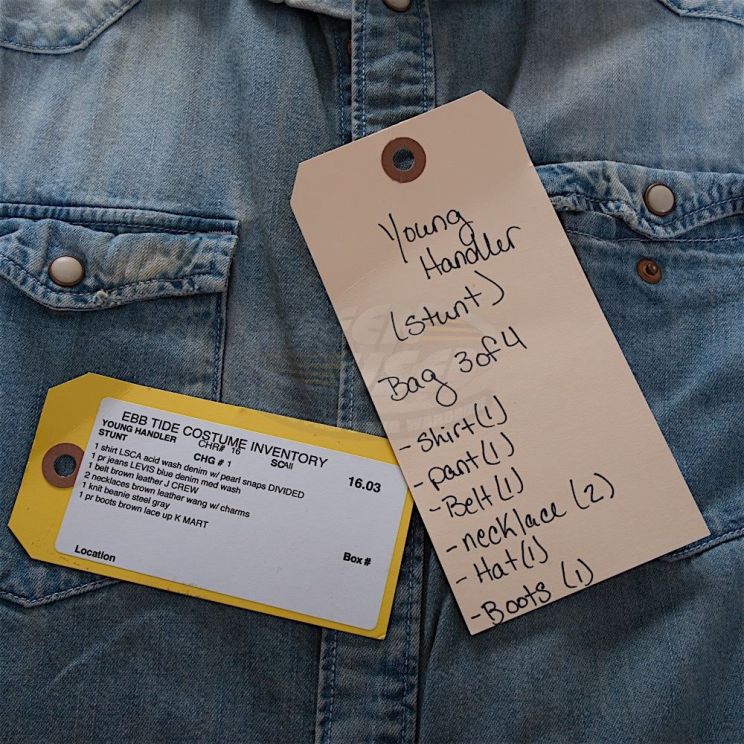 EBB TIDE COSTUME INVENTORY
YOUNG HANDLER CHR# 16
STUNT CHG # 1 SCAll 16.03
1 shirt LSCA acid wash denim w/ pearl snaps DIVIDED
1 pr jeans LEVIS blue denim med wash
1 belt brown leather J CREW
2 necklaces brown leather wang w/ charms
1 knit beanie steel gray
1 pr boots brown lace up K MART
Location Box #
Young
Handler
(stunt)
Bag 3 of 4
- shirt (1)
- pant (1)
- Belt (1)
- necklace (2)
- Hat (1)
- Boots (1)